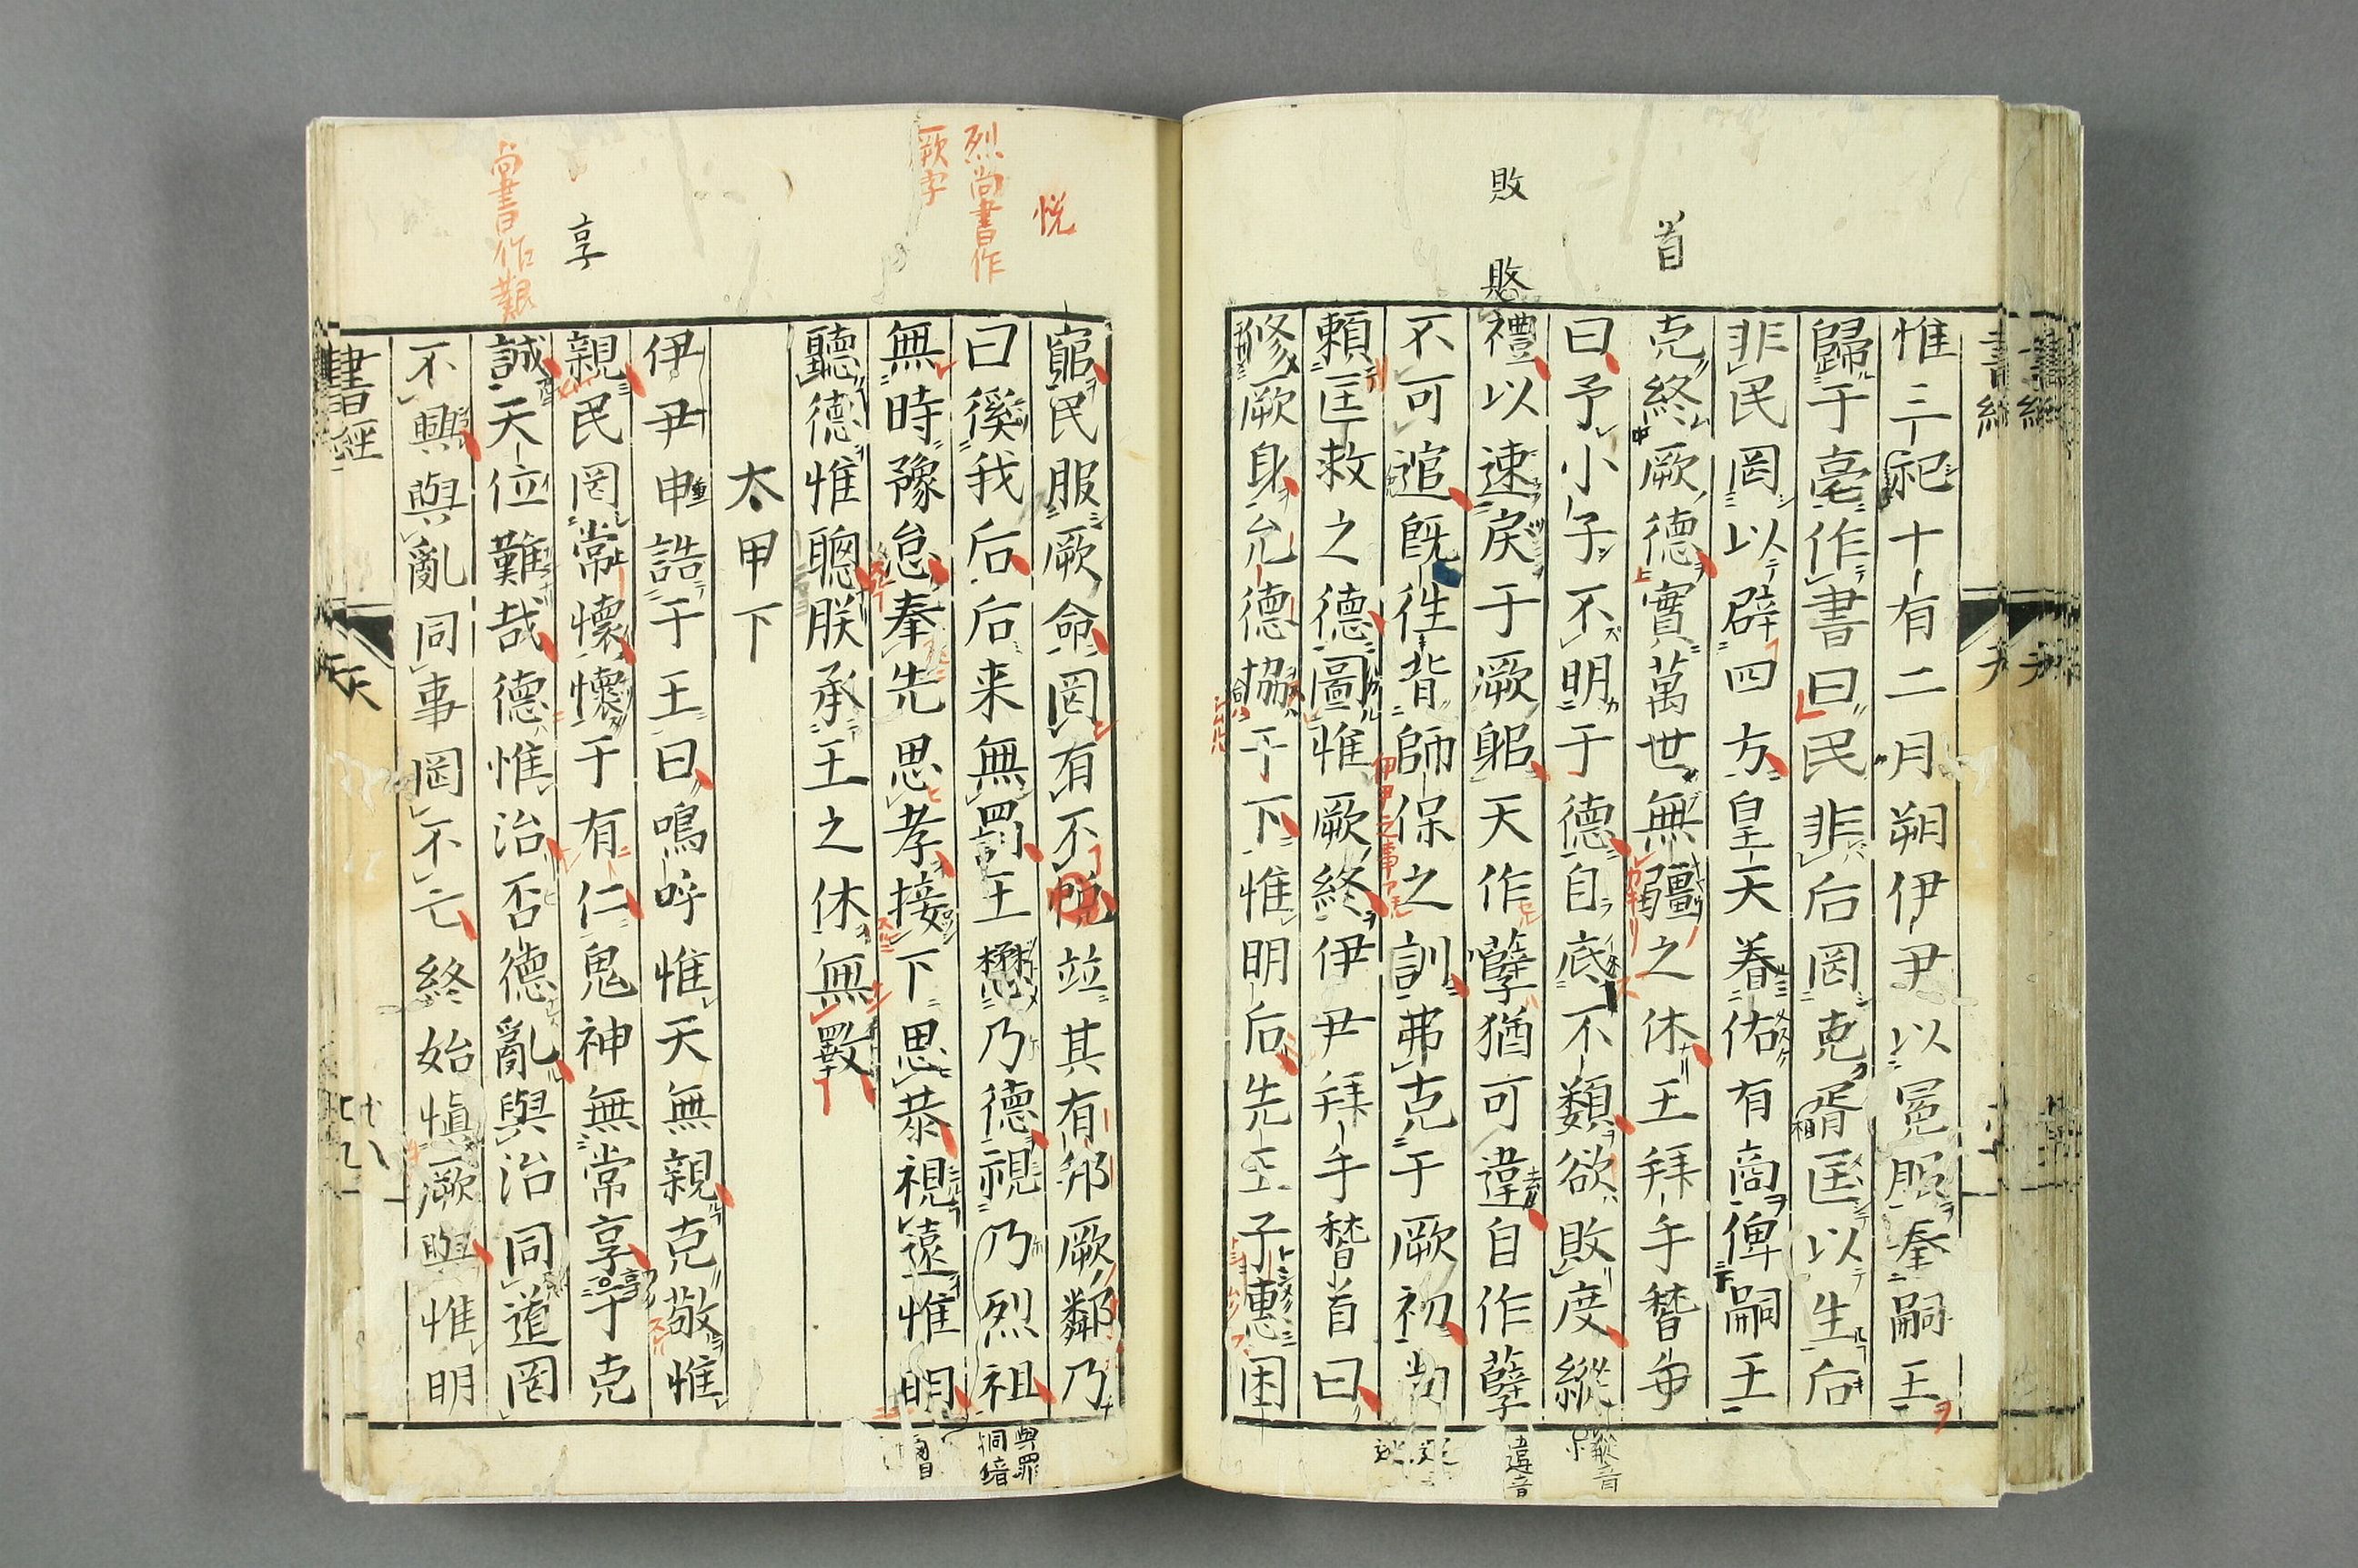 敗 敃
首
惟三祀十有二月朔伊尹以冕服奉嗣王
歸于亳作書曰民非后罔克胥匡以生后
非民罔以辟四方皇天眷佑有商俾嗣王
克終厥德實萬世無疆之休王拜手稽首
曰予小子不明于德自底不類欲敗度縱
禮以速戾于厥躬天作孽猶可違自作孽
不可逭旣往背師保之訓弗克于厥初尚
賴匡救之德圖惟厥終伊尹拜手稽首曰
修厥身允德協于下惟明后先王子惠困
悦
烈尚書作
厥字
享
尚書作艱
窮民服厥命罔有不悅並其有邦厥鄰乃
曰徯我后后来無罰王懋乃德視乃烈祖
無時豫怠奉先思孝接下思恭視遠惟明
聽德惟聰朕承王之休無斁
太甲下
伊尹申誥于王曰嗚呼惟天無親克敬惟
親民罔常懷懷于有仁鬼神無常享享于克
誠天位難哉德惟治否德亂與治同道罔
不興與亂同事罔不亡終始慎厥與惟明
書經